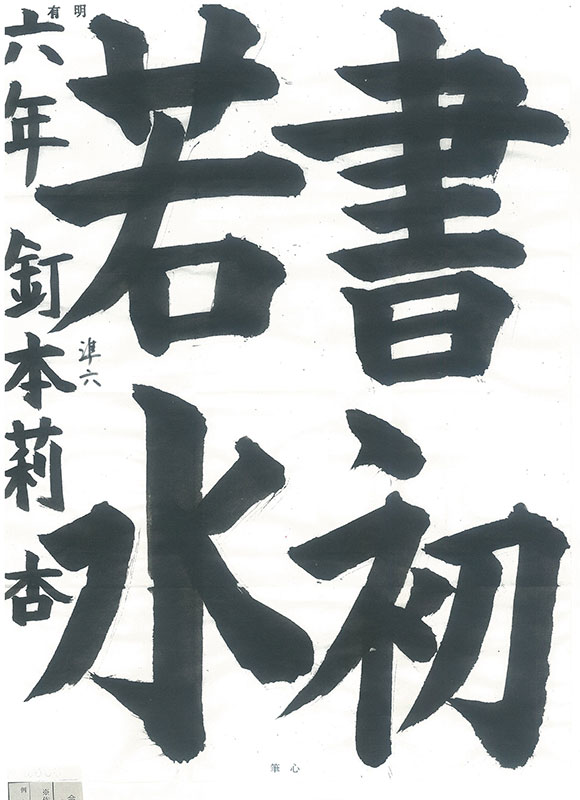 書初
若水
六年 釘本莉杏
準六
明有
心筆